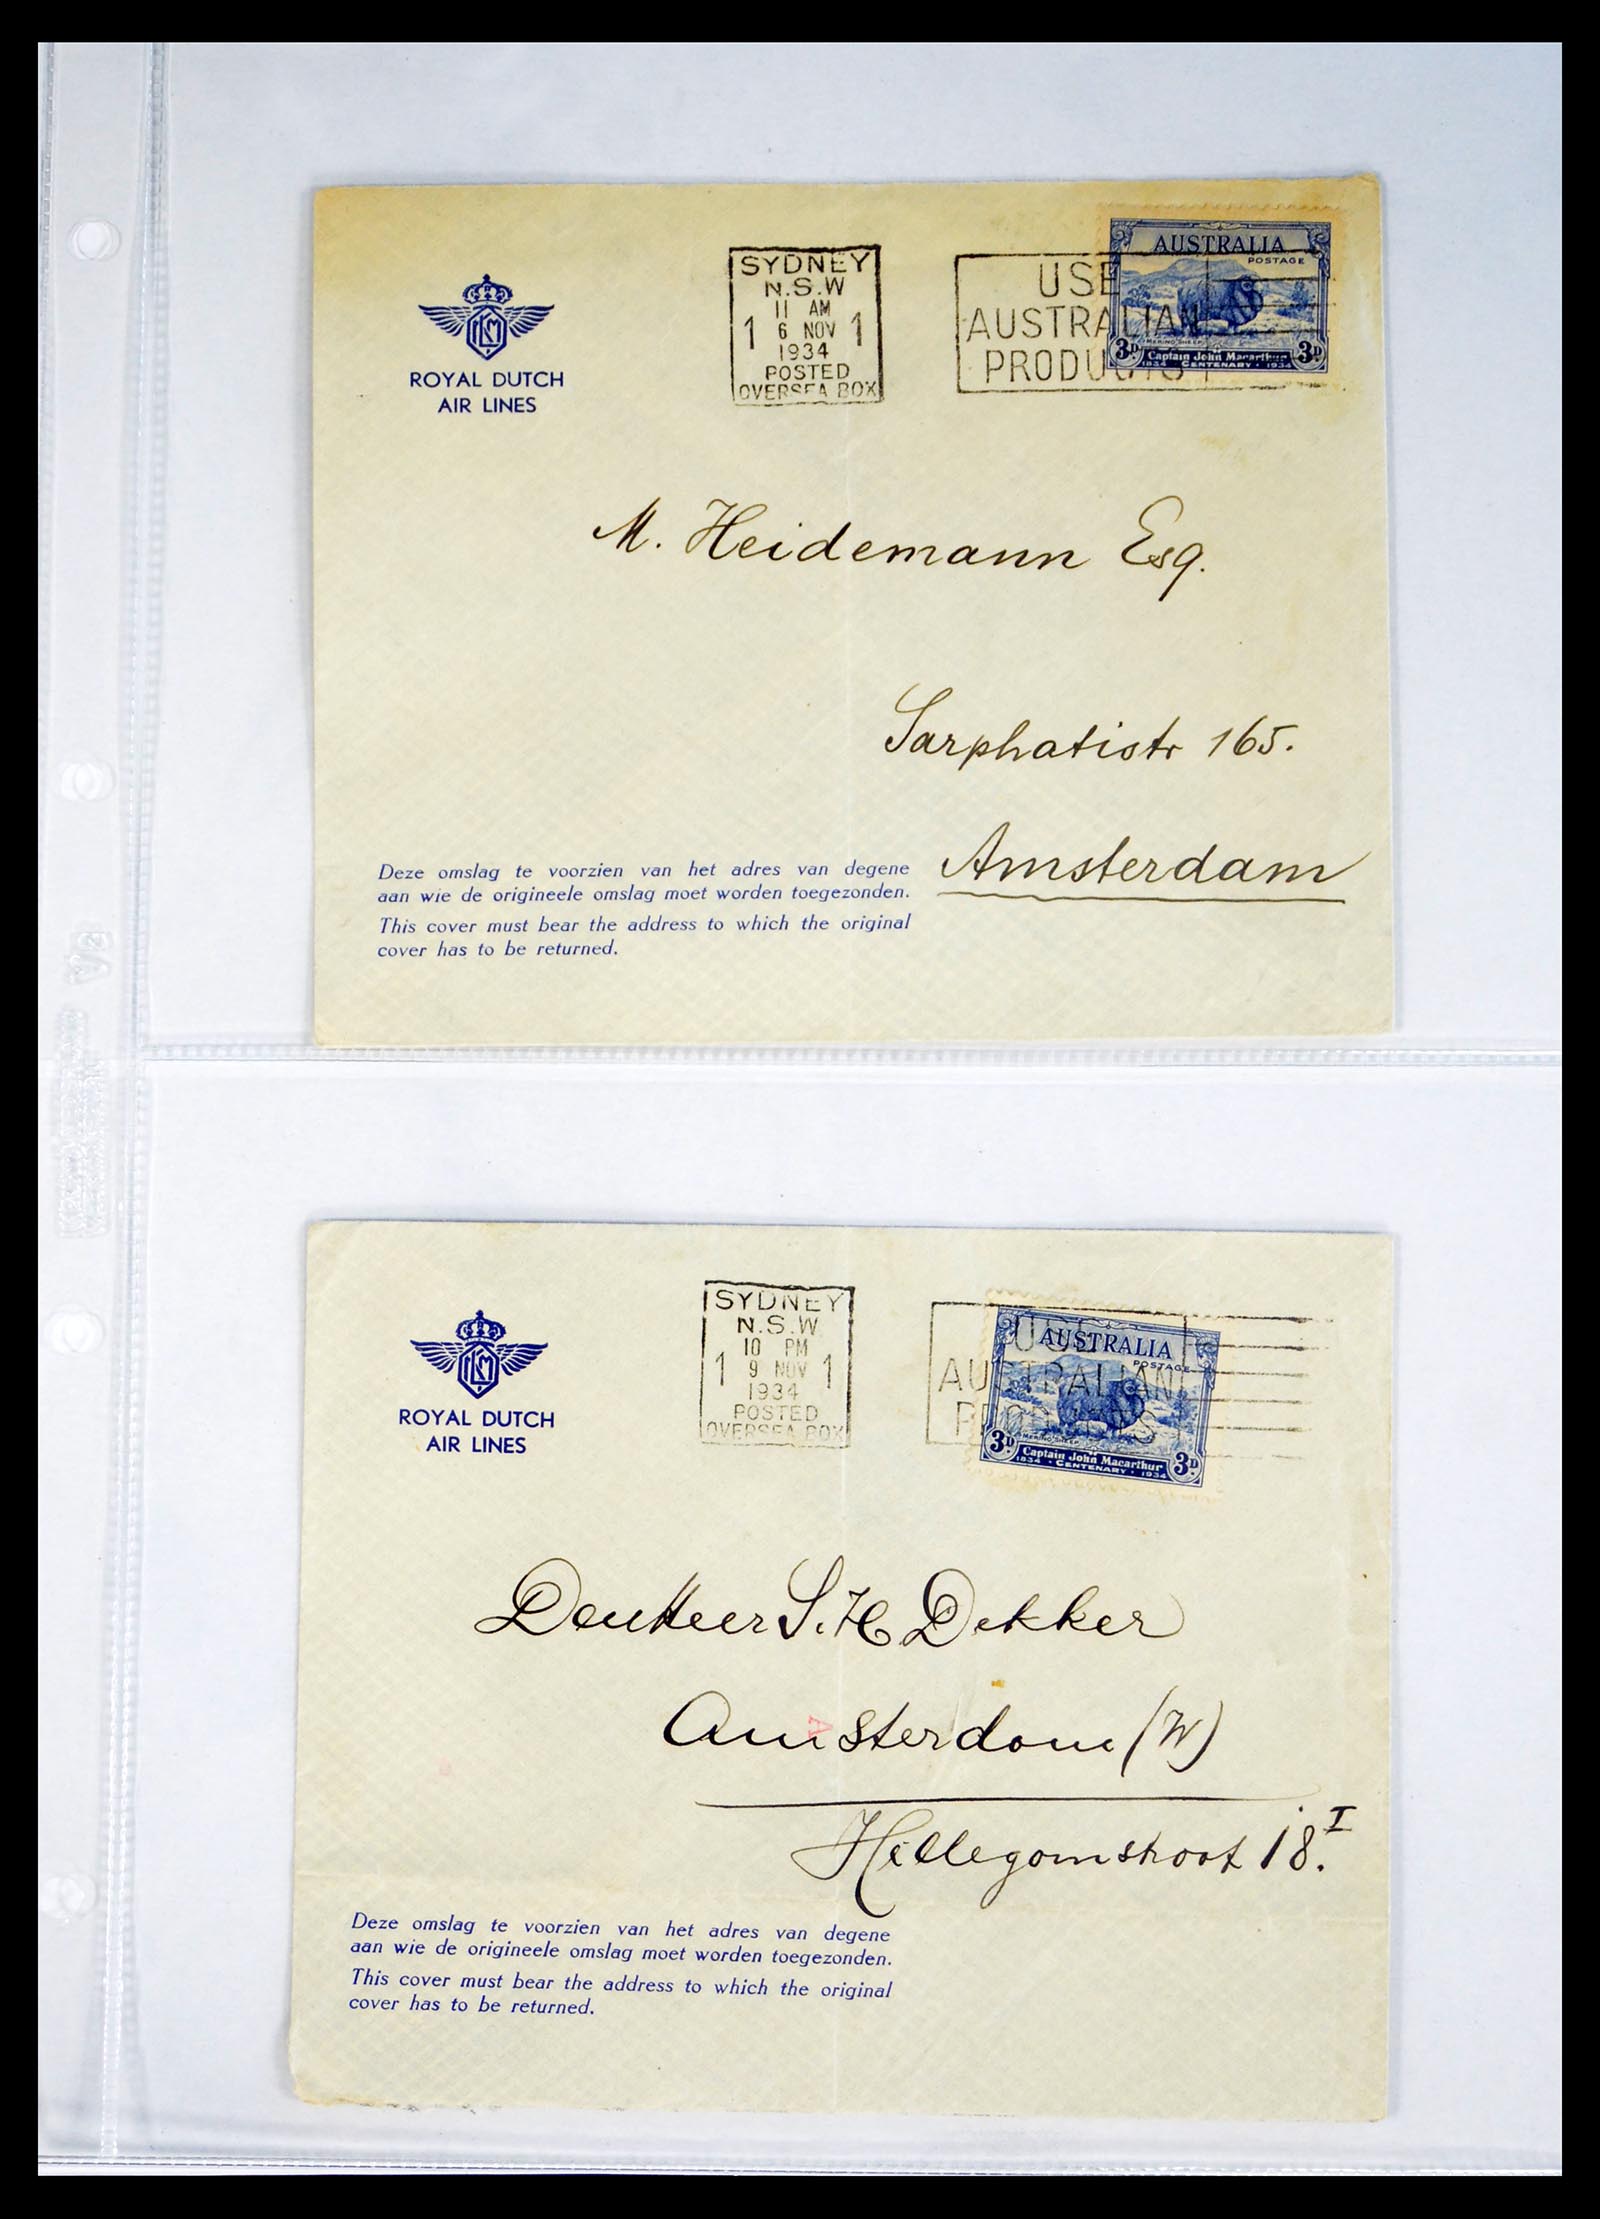 KLM
ROYAL DUTCH
AIR LINES
SYDNEY
N.S.W
11 AM
1 6 NOV 1
1934
POSTED
OVERSEA BOX
USE
AUSTRALIAN
PRODUCTS
AUSTRALIA
POSTAGE
MERINO SHEEP
3D Captain John Macarthur 3D
1834 · CENTENARY · 1934
M. Heidemann Esq.
Sarphatistr 165.
Amsterdam
Deze omslag te voorzien van het adres van degene
aan wie de origineele omslag moet worden toegezonden.
This cover must bear the address to which the original
cover has to be returned.
KLM
ROYAL DUTCH
AIR LINES
SYDNEY
N.S.W
10 PM
1 9 NOV 1
1934
POSTED
OVERSEA BOX
USE
AUSTRALIAN
PRODUCTS
AUSTRALIA
POSTAGE
MERINO SHEEP
3D Captain John Macarthur 3D
1834 · CENTENARY · 1934
Den Heer S. H Dekker
Amsterdam (W)
Hillegomstraat 18 I.
Deze omslag te voorzien van het adres van degene
aan wie de origineele omslag moet worden toegezonden.
This cover must bear the address to which the original
cover has to be returned.